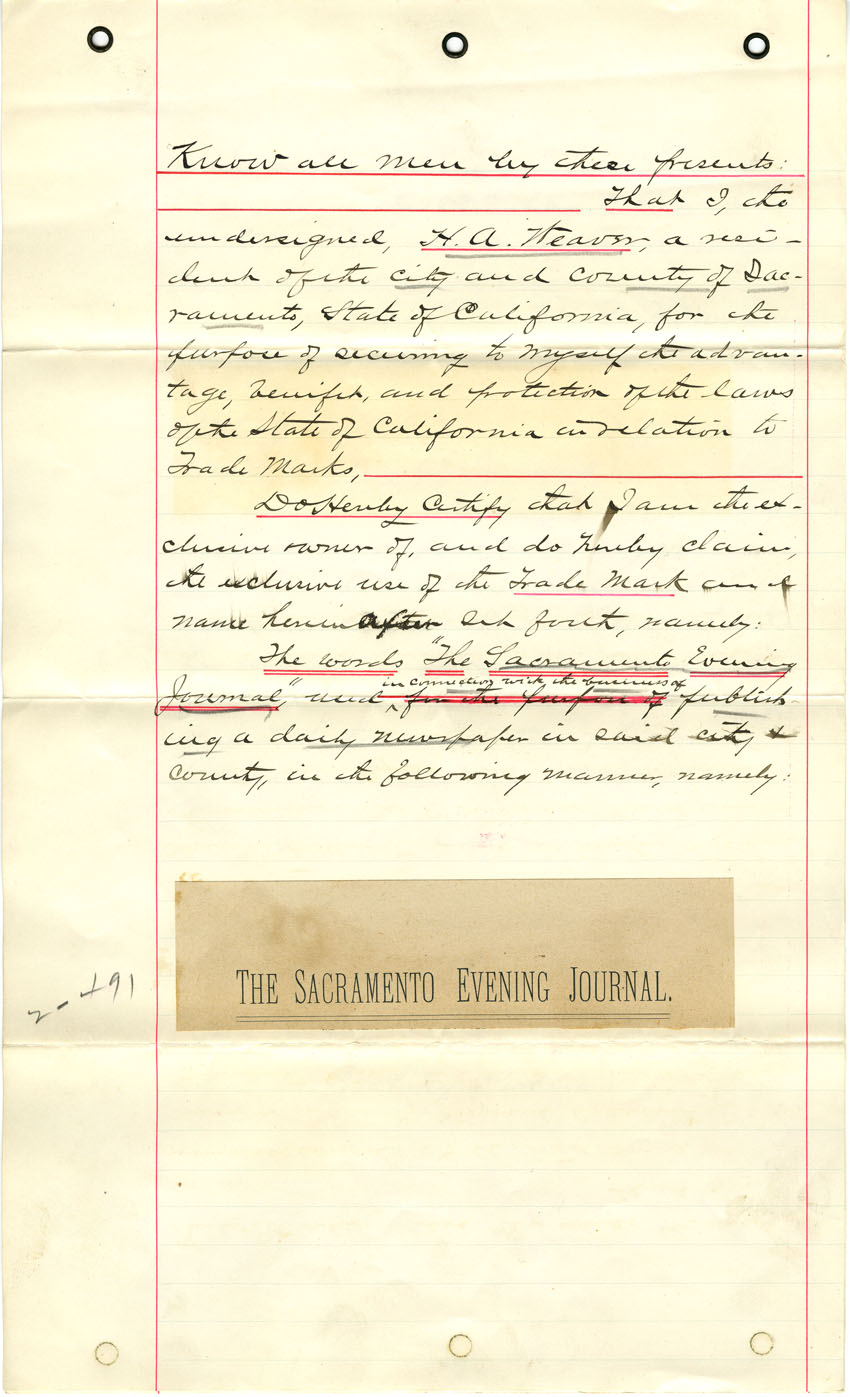 Know all men by these presents:
That I, the
undersigned, H. A. Weaver, a resi-
dent of the city and county of Sac-
ramento, State of California, for the
purpose of securing to myself the advan-
tage, benifit, and protection of the laws
of the State of California in relation to
Trade Marks,
Do Hereby Certify that I am the ex-
clusive owner of, and do hereby claim,
the exclusive use of the Trade Mark and
name herein after set forth, namely:
The words "The Sacramento Evening
in connection with the business of
Journal," used, for the purpose of publish-
ing a daily newspaper in said city &
county, in the following manner, namely:
THE SACRAMENTO EVENING JOURNAL.
2-491